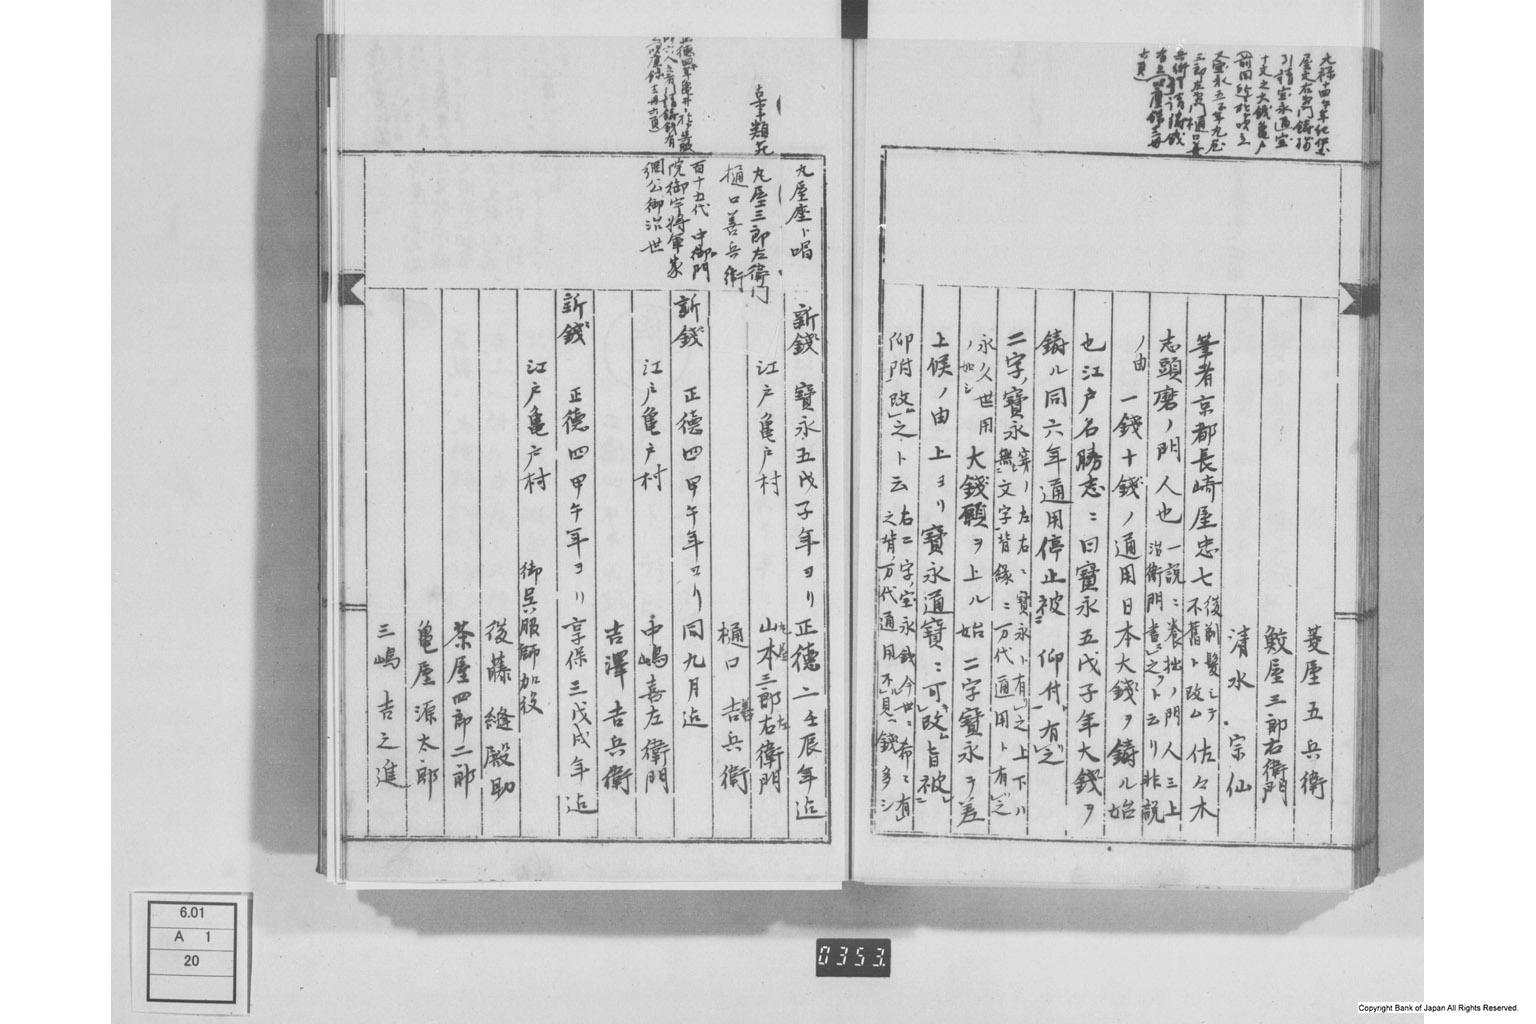 菱屋五兵衛
鮫屋三郎右衛門
清水宗仙
筆者京都長崎屋忠七後剃髪シテ不舊ト改ム佐々木
志頭磨ノ門人也一説ニ養拙ノ門人三上治衛門書之ト云リ非説
ノ由一錢十錢ノ通用日本大錢ヲ鋳ル始
也江戸名勝志ニ曰寶永五戊子年大錢ヲ
鋳ル同六年通用停止被仰付有之
二字寶永穿ノ左右ニ寶永ト有之上下ハ無文字背縁ニ万代通用ト有之
永久世用ノ如シ大錢願ヲ上ル始二字寶永ヲ差
上候ノ由上ヨリ寶永通寶ニ可改旨被
仰附改之ト云右二字宝永銭今世ニ希ニ有之背万代通用不見錢多シ
九屋座ト唱
新錢 寶永五戊子年ヨリ正德二壬辰年迠
丸屋三郎左衛門
江戸亀戸村 山本三郎右衛門
樋口善兵衛
樋口吉兵衛
百十五代 中御門
院御宇将軍家
綱公御治世
新錢 正德四甲午年ヨリ同九月迠
江戸亀戸村 中嶋嘉左衛門
吉澤吉兵衛
新錢 正德四甲午年ヨリ享保三戊戌年迠
江戸亀戸村 御呉服師加役
後藤縫殿助
茶屋四郎二郎
亀屋源太郎
三嶋吉之進
6.01
A 1
20
0353
Copyright Bank of Japan All Rights Reserved.